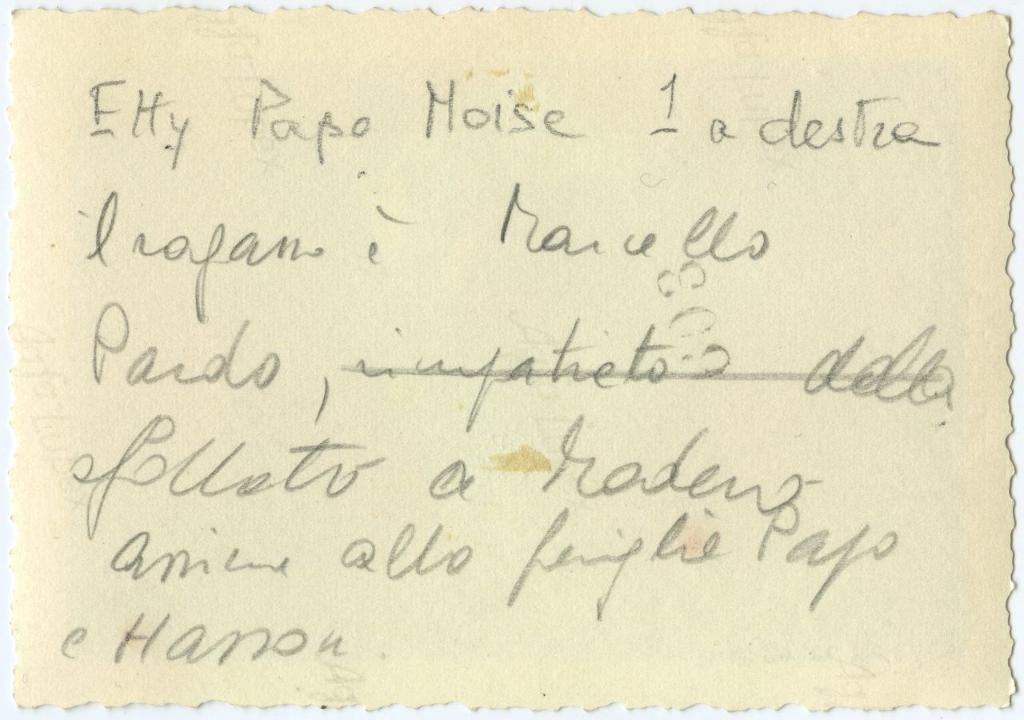 Etty Papo Moise 1 a destra
Il ragazzo è Marcello
Pardo, rimpatriato dalla
sfollato a Modena
assieme alla famiglia Papo
e Hasson